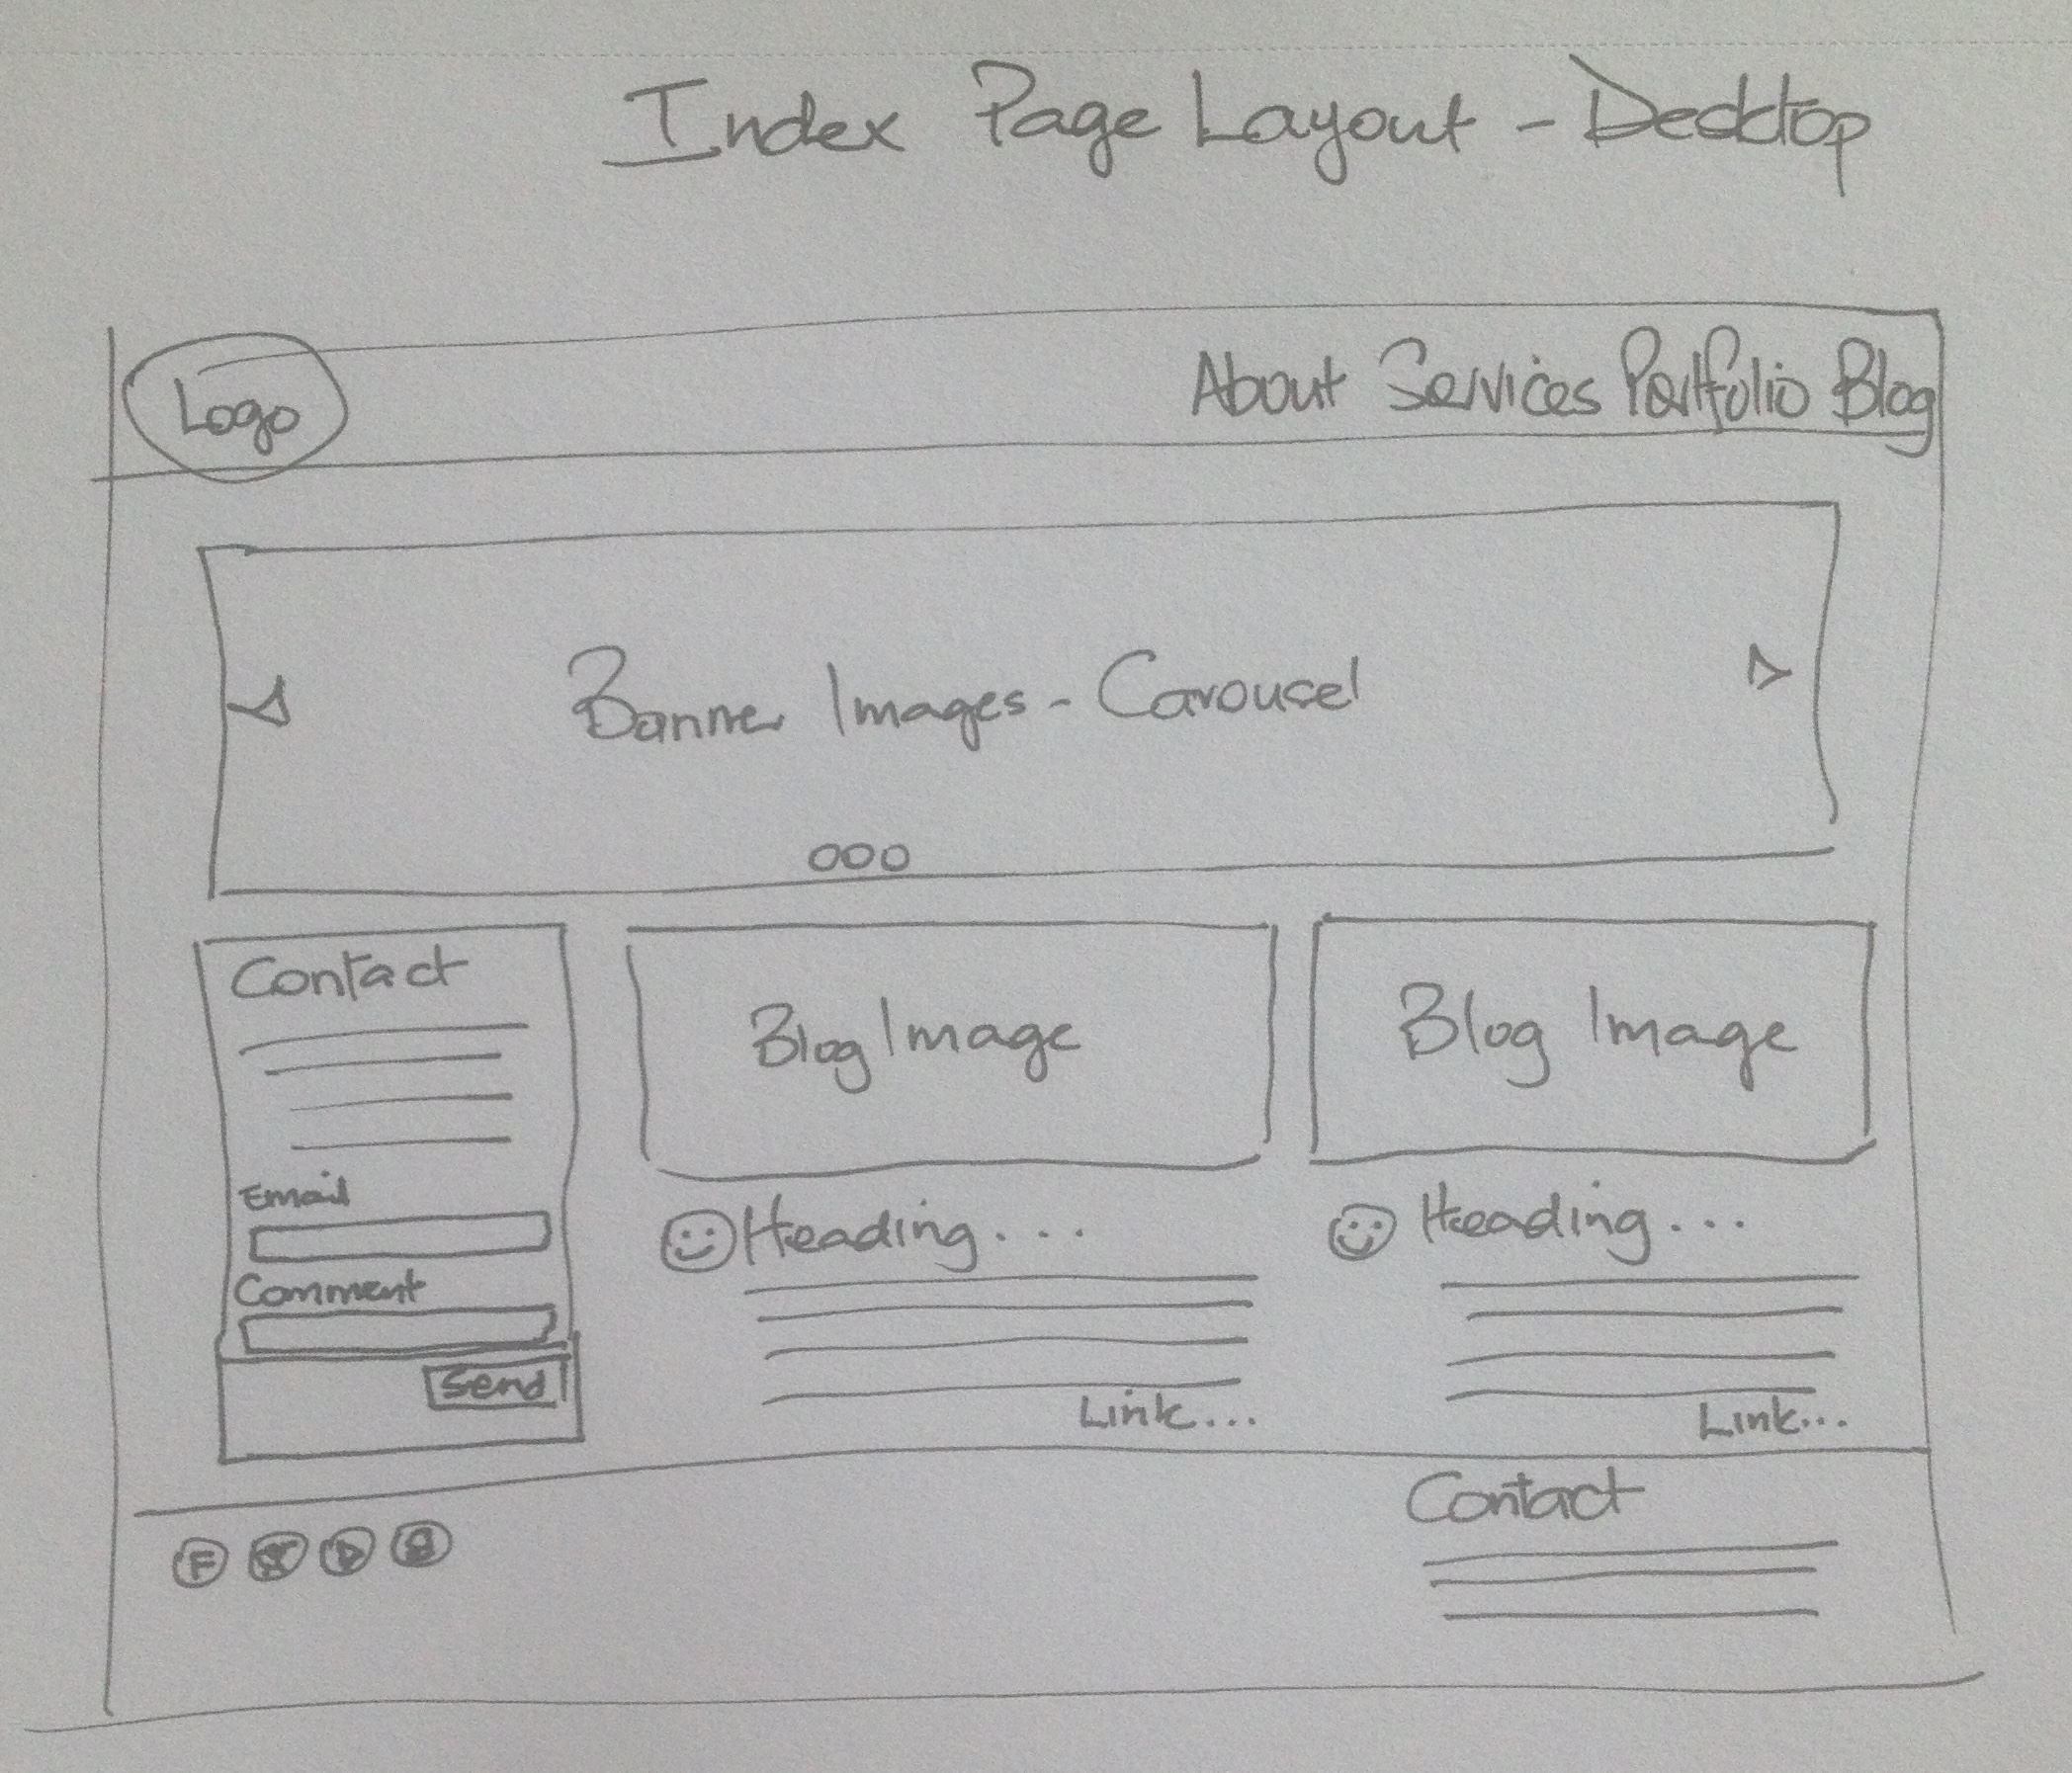 Index Page Layout - Desktop
Logo
About Services Portfolio Blog
Banner Images - Carousel
Contact
Email
Comment
Send
Blog Image
Heading...
Link...
Blog Image
Heading...
Link...
F
Contact